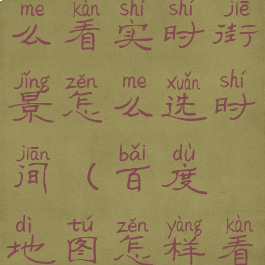 me kàn shí shí jiē
么看实时街
jǐng zěn me xuǎn shí
景怎么选时
jiān bǎi dù
间（百度
dì tú zěn yàng kàn
地图怎样看